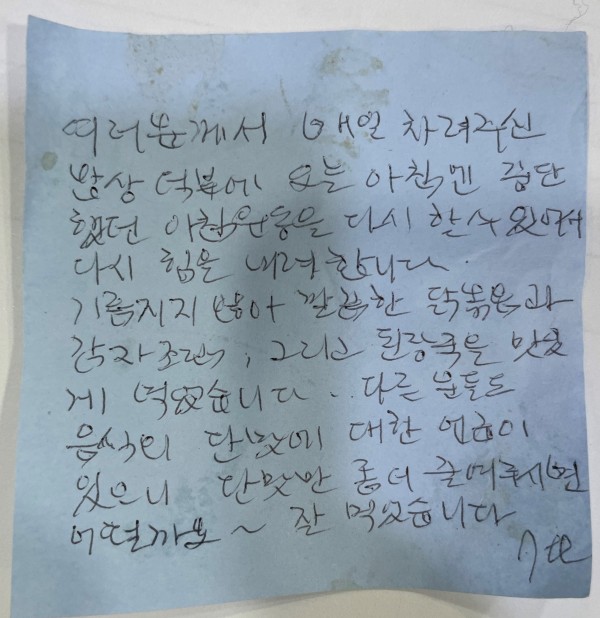 여러분께서 매일 차려주신
밥상 덕분에 오늘 아침엔 중단
했던 아침운동을 다시 할 수 있어서
다시 힘을 내려 합니다.
기름지지 않아 깔끔한 닭볶음과
감자조림, 그리고 된장국을 맛있
게 먹었습니다.. 다른 분들도
음식의 단맛에 대한 언급이
있으니 단맛만 좀더 줄여주시면
어떨까요~ 잘 먹었습니다